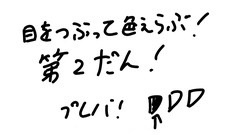 目をつぶって色えらぶ!
第2だん!
プレバ! DDD
↑